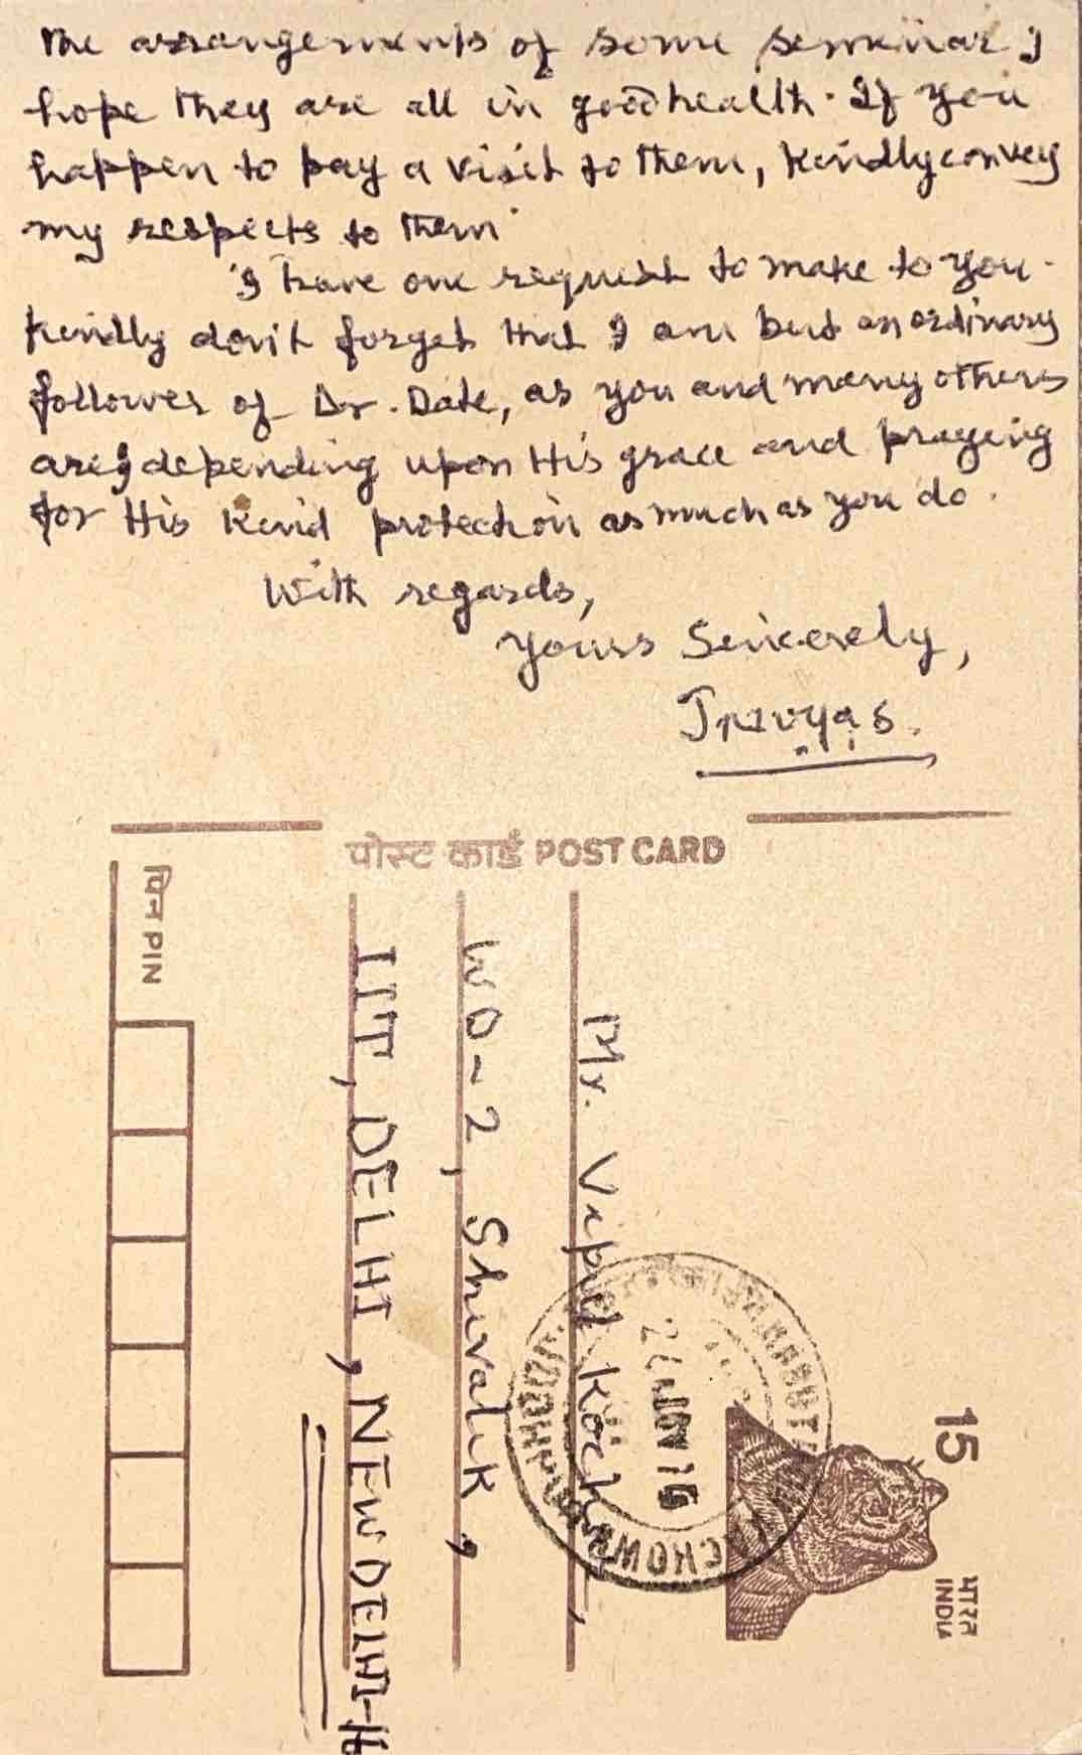 the arrangements of some seminar. I
hope they are all in good health. If you
happen to pay a visit to them, kindly convey
my respects to them.
I have one request to make to you.
kindly don't forget that I am but an ordinary
follower of Dr. Date, as you and many others
are, depending upon His grace and praying
for His kind protection as much as you do.
With regards,
Yours Sincerely,
पोस्ट कार्ड POST CARD
15
भारत
INDIA
Mr. Vipul
WD-2, Shivalik,
IIT, DELHI, NEW DELHI-16
पिन PIN